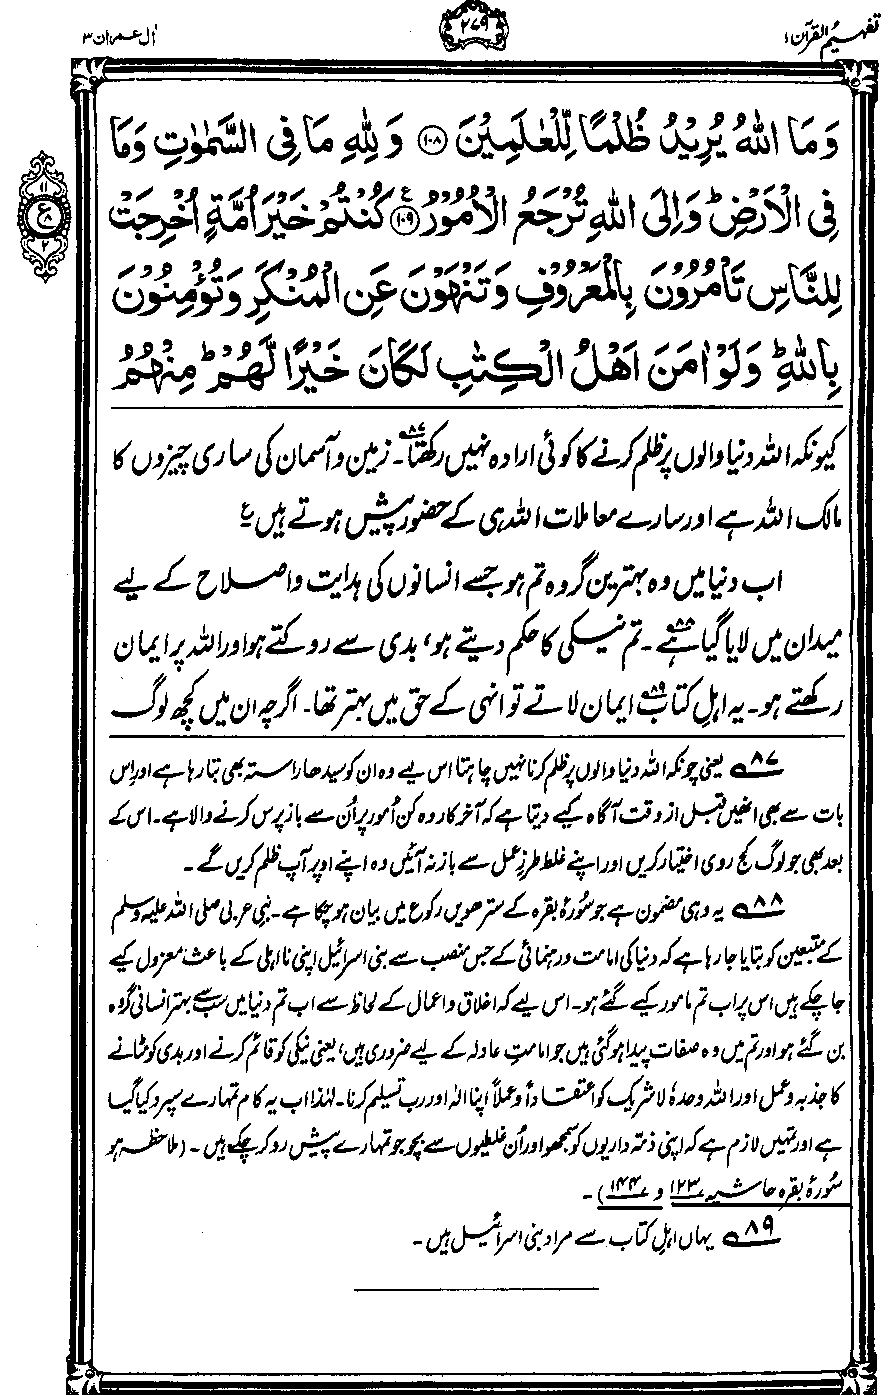 تفہیم القرآن ۱
۲۷۹
اٰل عمران ۳
وَمَا اللّٰهُ يُرِيْدُ ظُلْمًا لِّلْعٰلَمِيْنَ ۝۱۰۸ وَلِلّٰهِ مَا فِى السَّمٰوٰتِ وَمَا
فِى الْاَرْضِ ؕ وَاِلَى اللّٰهِ تُرْجَعُ الْاُمُوْرُ ۝۱۰۹ع كُنْتُمْ خَيْرَ اُمَّةٍ اُخْرِجَتْ
لِلنَّاسِ تَاْمُرُوْنَ بِالْمَعْرُوْفِ وَتَنْهَوْنَ عَنِ الْمُنْكَرِ وَتُؤْمِنُوْنَ
بِاللّٰهِ ؕ وَلَوْ اٰمَنَ اَهْلُ الْكِتٰبِ لَكَانَ خَيْرًا لَّهُمْ ؕ مِنْهُمُ
۱۱
ع
۸
۲
کیونکہ اللہ دنیا والوں پر ظلم کرنے کا کوئی ارادہ نہیں رکھتا۸۷۔ زمین و آسمان کی ساری چیزوں کا
مالک اللہ ہے اور سارے معاملات اللہ ہی کے حضور پیش ہوتے ہیں ع
اب دنیا میں وہ بہترین گروہ تم ہو جسے انسانوں کی ہدایت و اصلاح کے لیے
میدان میں لایا گیا ہے۸۸۔ تم نیکی کا حکم دیتے ہو، بدی سے روکتے ہو اور اللہ پر ایمان
رکھتے ہو۔ یہ اہلِ کتاب۸۹ ایمان لاتے تو انہی کے حق میں بہتر تھا۔ اگرچہ ان میں کچھ لوگ
۸۷ یعنی چونکہ اللہ دنیا والوں پر ظلم کرنا نہیں چاہتا اس لیے وہ ان کو سیدھا راستہ بھی بتا رہا ہے اور اِس
بات سے بھی انھیں قبل از وقت آگاہ کیے دیتا ہے کہ آخر کار وہ کن اُمور پر اُن سے باز پرس کرنے والا ہے۔ اس کے
بعد بھی جو لوگ کج روی اختیار کریں اور اپنے غلط طرزِ عمل سے باز نہ آئیں وہ اپنے اوپر آپ ظلم کریں گے۔
۸۸ یہ وہی مضمون ہے جو سورۂ بقرہ کے سترھویں رکوع میں بیان ہو چکا ہے۔ نبیِ عربی صلی اللہ علیہ وسلم
کے متبعین کو بتایا جا رہا ہے کہ دنیا کی امامت و رہنمائی کے جس منصب سے بنی اسرائیل اپنی نااہلی کے باعث معزول کیے
جا چکے ہیں اس پر اب تم مامور کیے گئے ہو۔ اس لیے کہ اخلاق و اعمال کے لحاظ سے اب تم دنیا میں سب سے بہتر انسانی گروہ
بن گئے ہو اور تم میں وہ صفات پیدا ہو گئی ہیں جو امامتِ عادلہ کے لیے ضروری ہیں، یعنی نیکی کو قائم کرنے اور بدی کو مٹانے
کا جذبہ و عمل اور اللہ وحدہٗ لاشریک کو اعتقاداً و عملاً اپنا الٰہ اور رب تسلیم کرنا۔ لہٰذا اب یہ کام تمہارے سپرد کیا گیا
ہے اور تمہیں لازم ہے کہ اپنی ذمہ داریوں کو سمجھو اور اُن غلطیوں سے بچو جو تمہارے پیش رو کر چکے ہیں۔ (ملاحظہ ہو
سُورۂ بقرہ حاشیہ ۱۲۳ و ۱۴۴)۔
۸۹ یہاں اہلِ کتاب سے مراد بنی اسرائیل ہیں۔